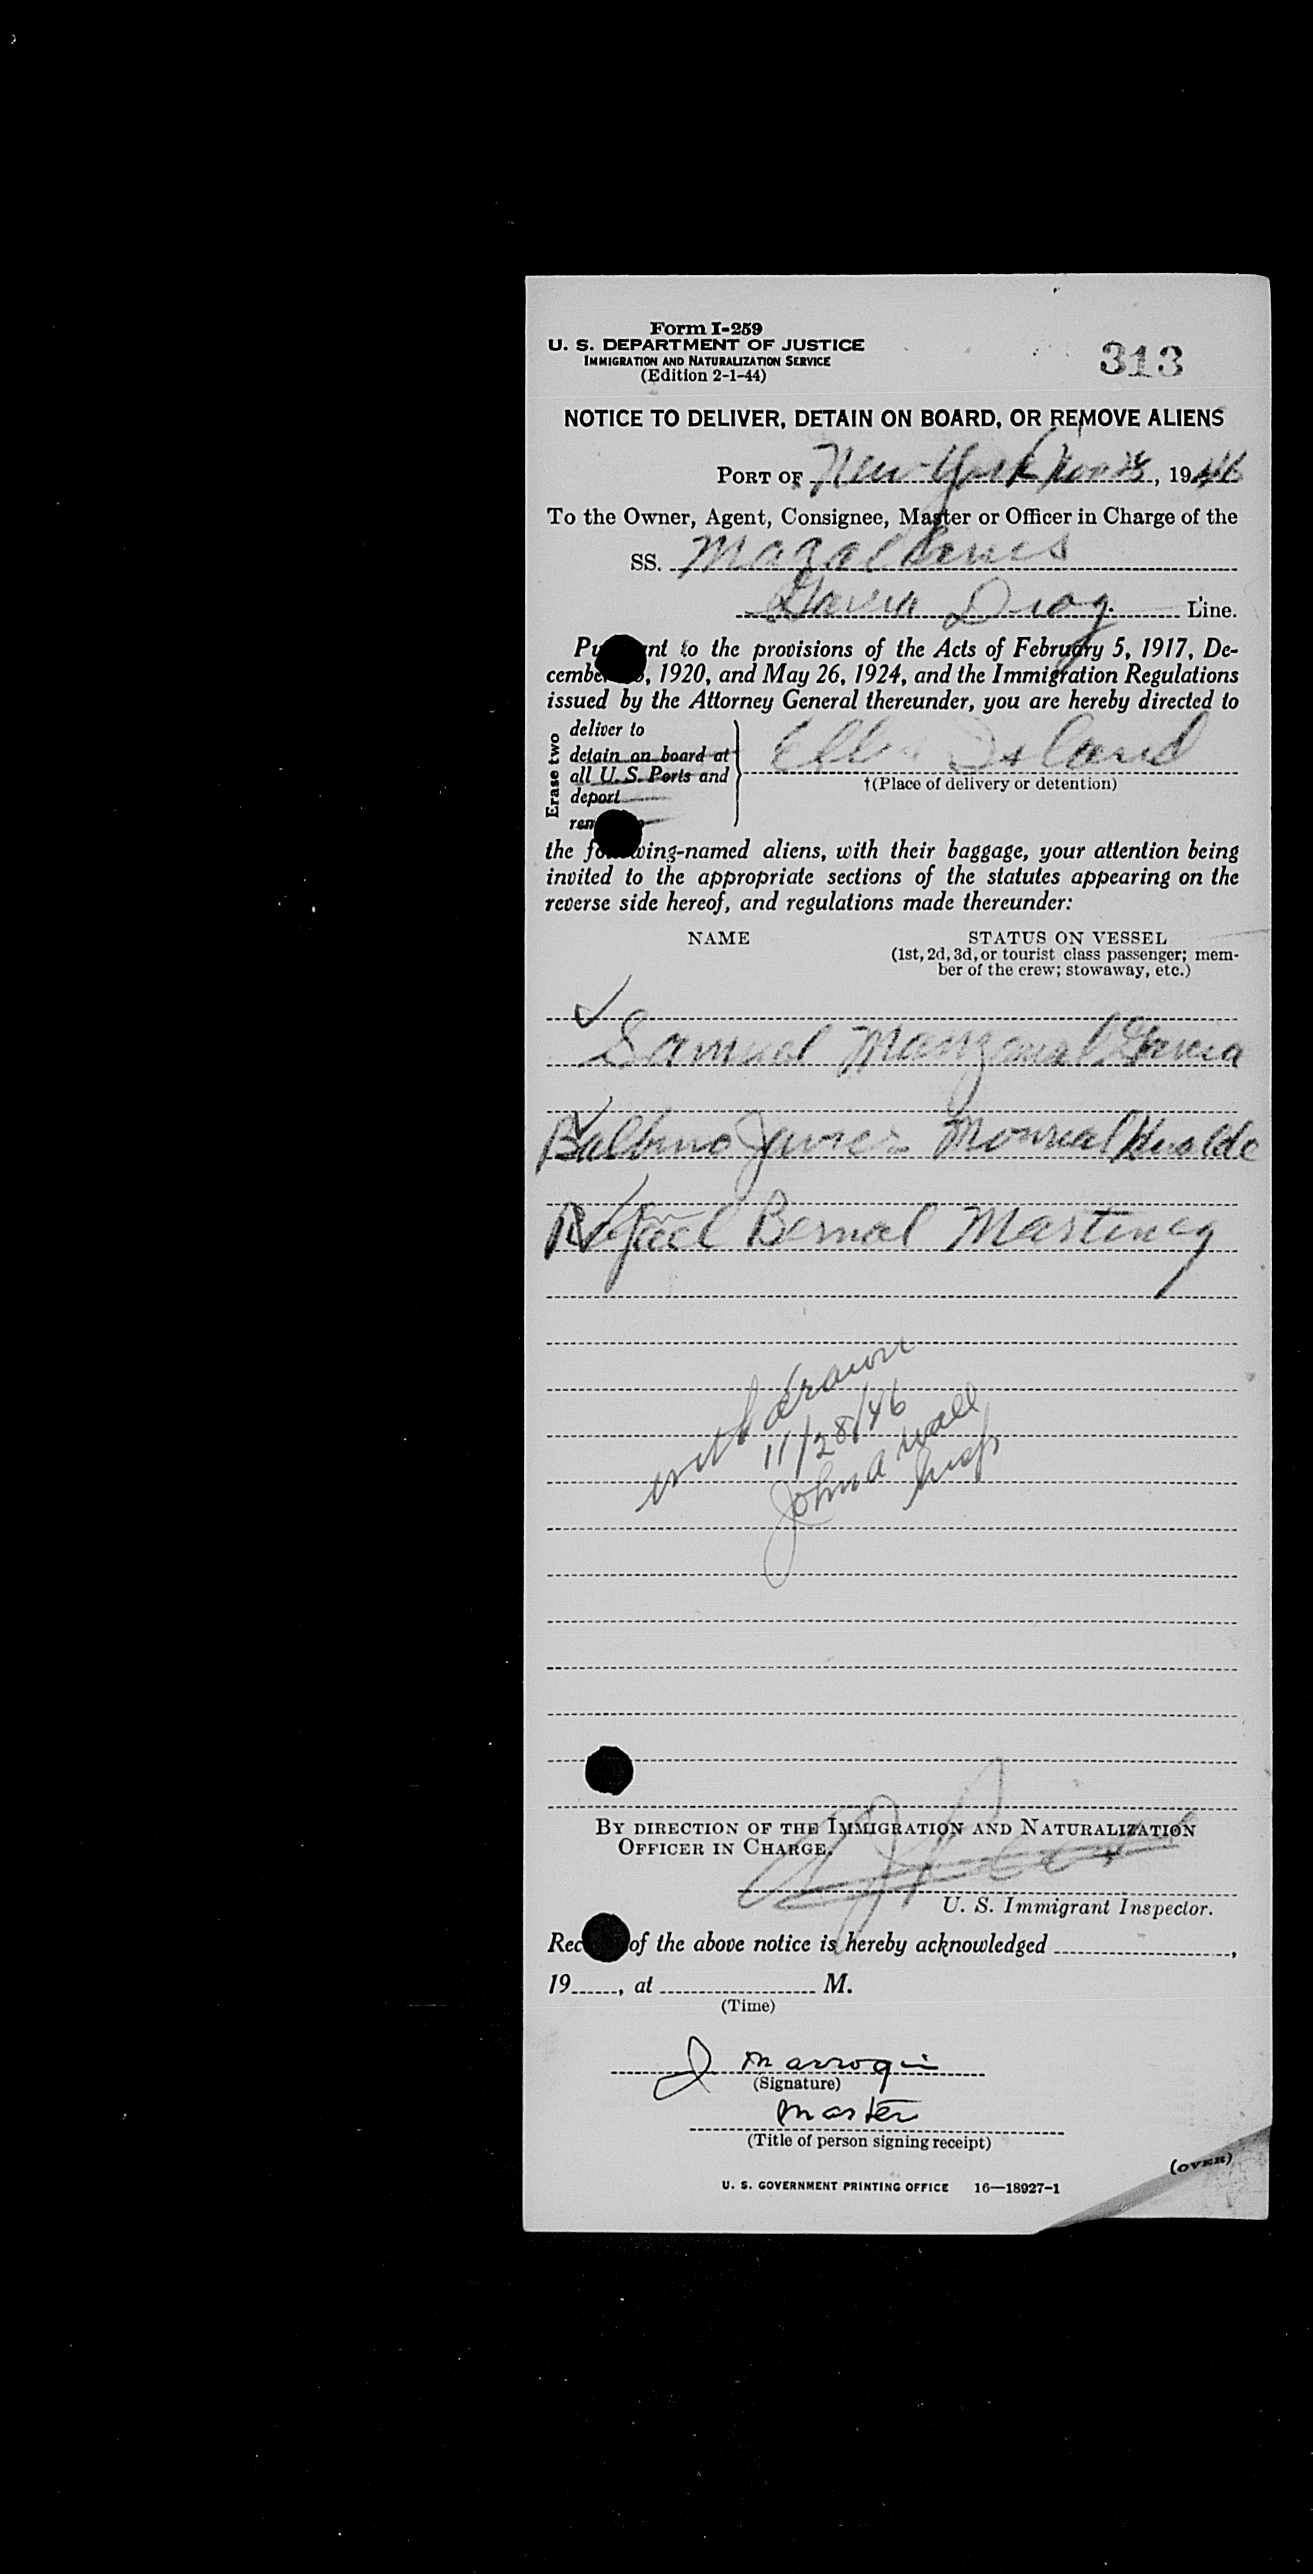 Form I-259
U. S. DEPARTMENT OF JUSTICE
IMMIGRATION AND NATURALIZATION SERVICE
(Edition 2-1-44)
313
NOTICE TO DELIVER, DETAIN ON BOARD, OR REMOVE ALIENS
PORT OF New York Nov 28, 1946
To the Owner, Agent, Consignee, Master or Officer in Charge of the
SS. Magallanes
Garcia Diaz Line.
Pu nt to the provisions of the Acts of February 5, 1917, De-
cembe , 1920, and May 26, 1924, and the Immigration Regulations
issued by the Attorney General thereunder, you are hereby directed to
Erase two
deliver to
detain on board at
all U. S. Ports and
deport
rem
Ellis Island
†(Place of delivery or detention)
the fo wing-named aliens, with their baggage, your attention being
invited to the appropriate sections of the statutes appearing on the
reverse side hereof, and regulations made thereunder:
NAME
STATUS ON VESSEL
(1st, 2d, 3d, or tourist class passenger; mem-
ber of the crew; stowaway, etc.)
Samuel Manzanal Garcia
Balbino Javier Monreal
Rafael Bernal Martinez
withdrawn
11/28/46
John A Wall
Insp
BY DIRECTION OF THE IMMIGRATION AND NATURALIZATION
OFFICER IN CHARGE.
U. S. Immigrant Inspector.
Rec of the above notice is hereby acknowledged ,
19 , at M.
(Time)
J Marroqin
(Signature)
Master
(Title of person signing receipt)
(OVER)
U. S. GOVERNMENT PRINTING OFFICE 16—18927-1